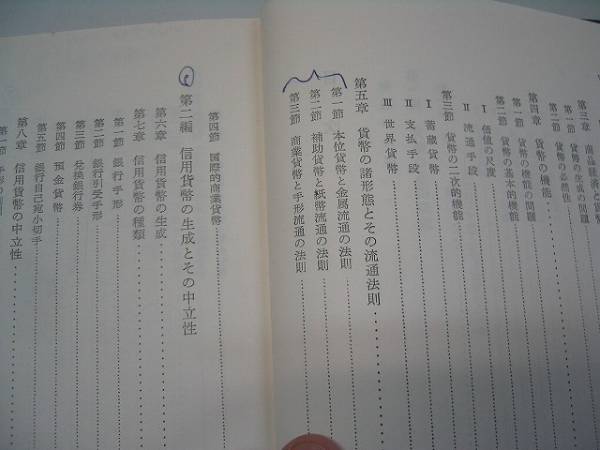 第三章　商品経済と貨幣
第一節　貨幣の生成の問題
第二節　貨幣の必然性
第四章　貨幣の機能
第一節　貨幣の機能の問題
第二節　貨幣の基本的機能
I　価値の尺度
II　流通手段
第三節　貨幣の二次的機能
I　蓄蔵貨幣
II　支払手段
III　世界貨幣
第五章　貨幣の諸形態とその流通法則
第一節　本位貨幣と金属流通の法則
第二節　補助貨幣と紙幣流通の法則
第三節　商業貨幣と手形流通の法則
第四節　国際的商業貨幣
第二編　信用貨幣の生成とその中立性
第六章　信用貨幣の生成
第七章　信用貨幣の種類
第一節　銀行手形
第二節　銀行引受手形
第三節　兌換銀行券
第四節　預金貨幣
第五節　銀行自己宛小切手
第八章　信用貨幣の中立性
第一節